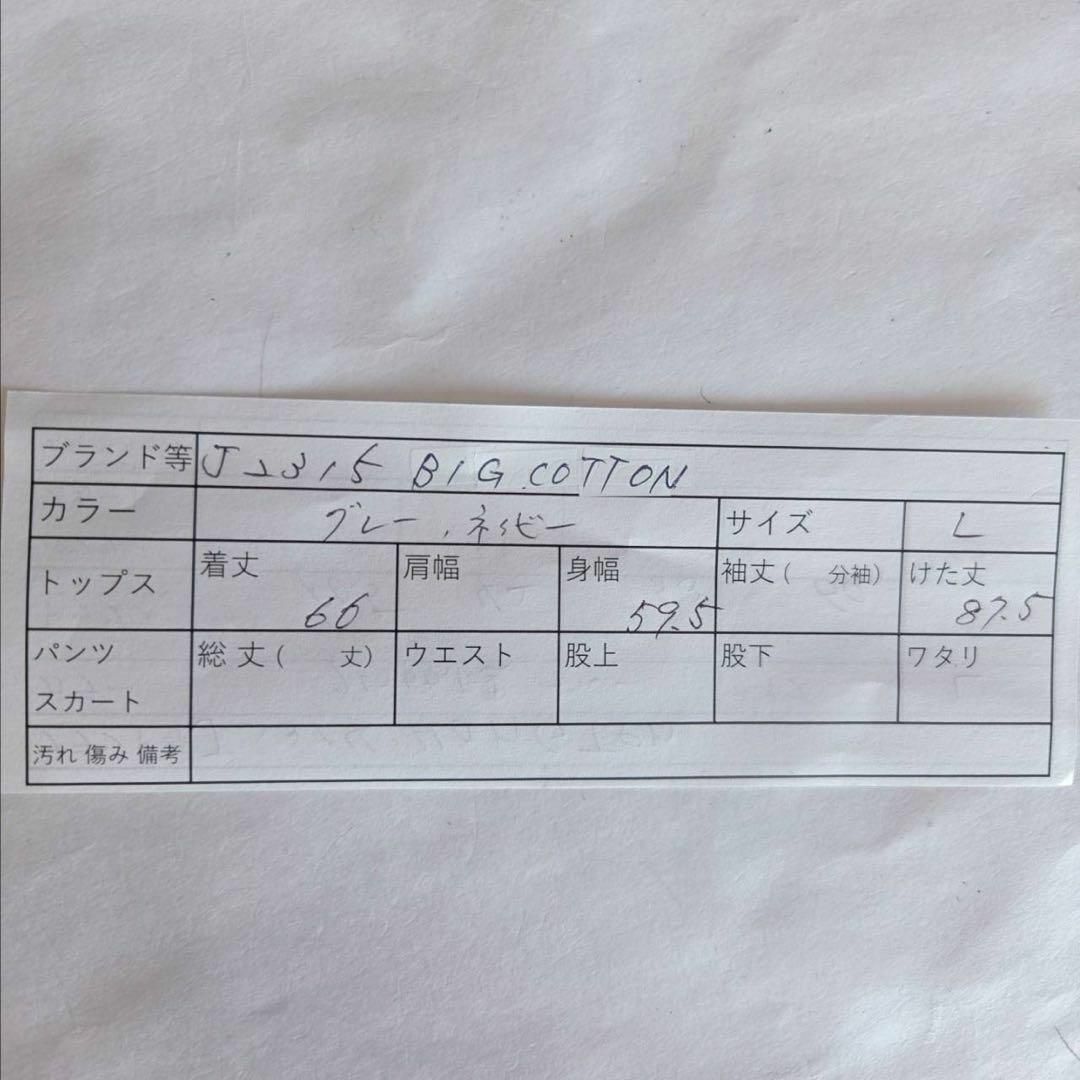 ブランド等 J2315 BIG COTTON
カラー グレー、ネイビー サイズ L
トップス 着丈 66 肩幅 身幅 59.5 袖丈( 分袖) けた丈 87.5
パンツ スカート 総丈( 丈) ウエスト 股上 股下 ワタリ
汚れ 傷み 備考